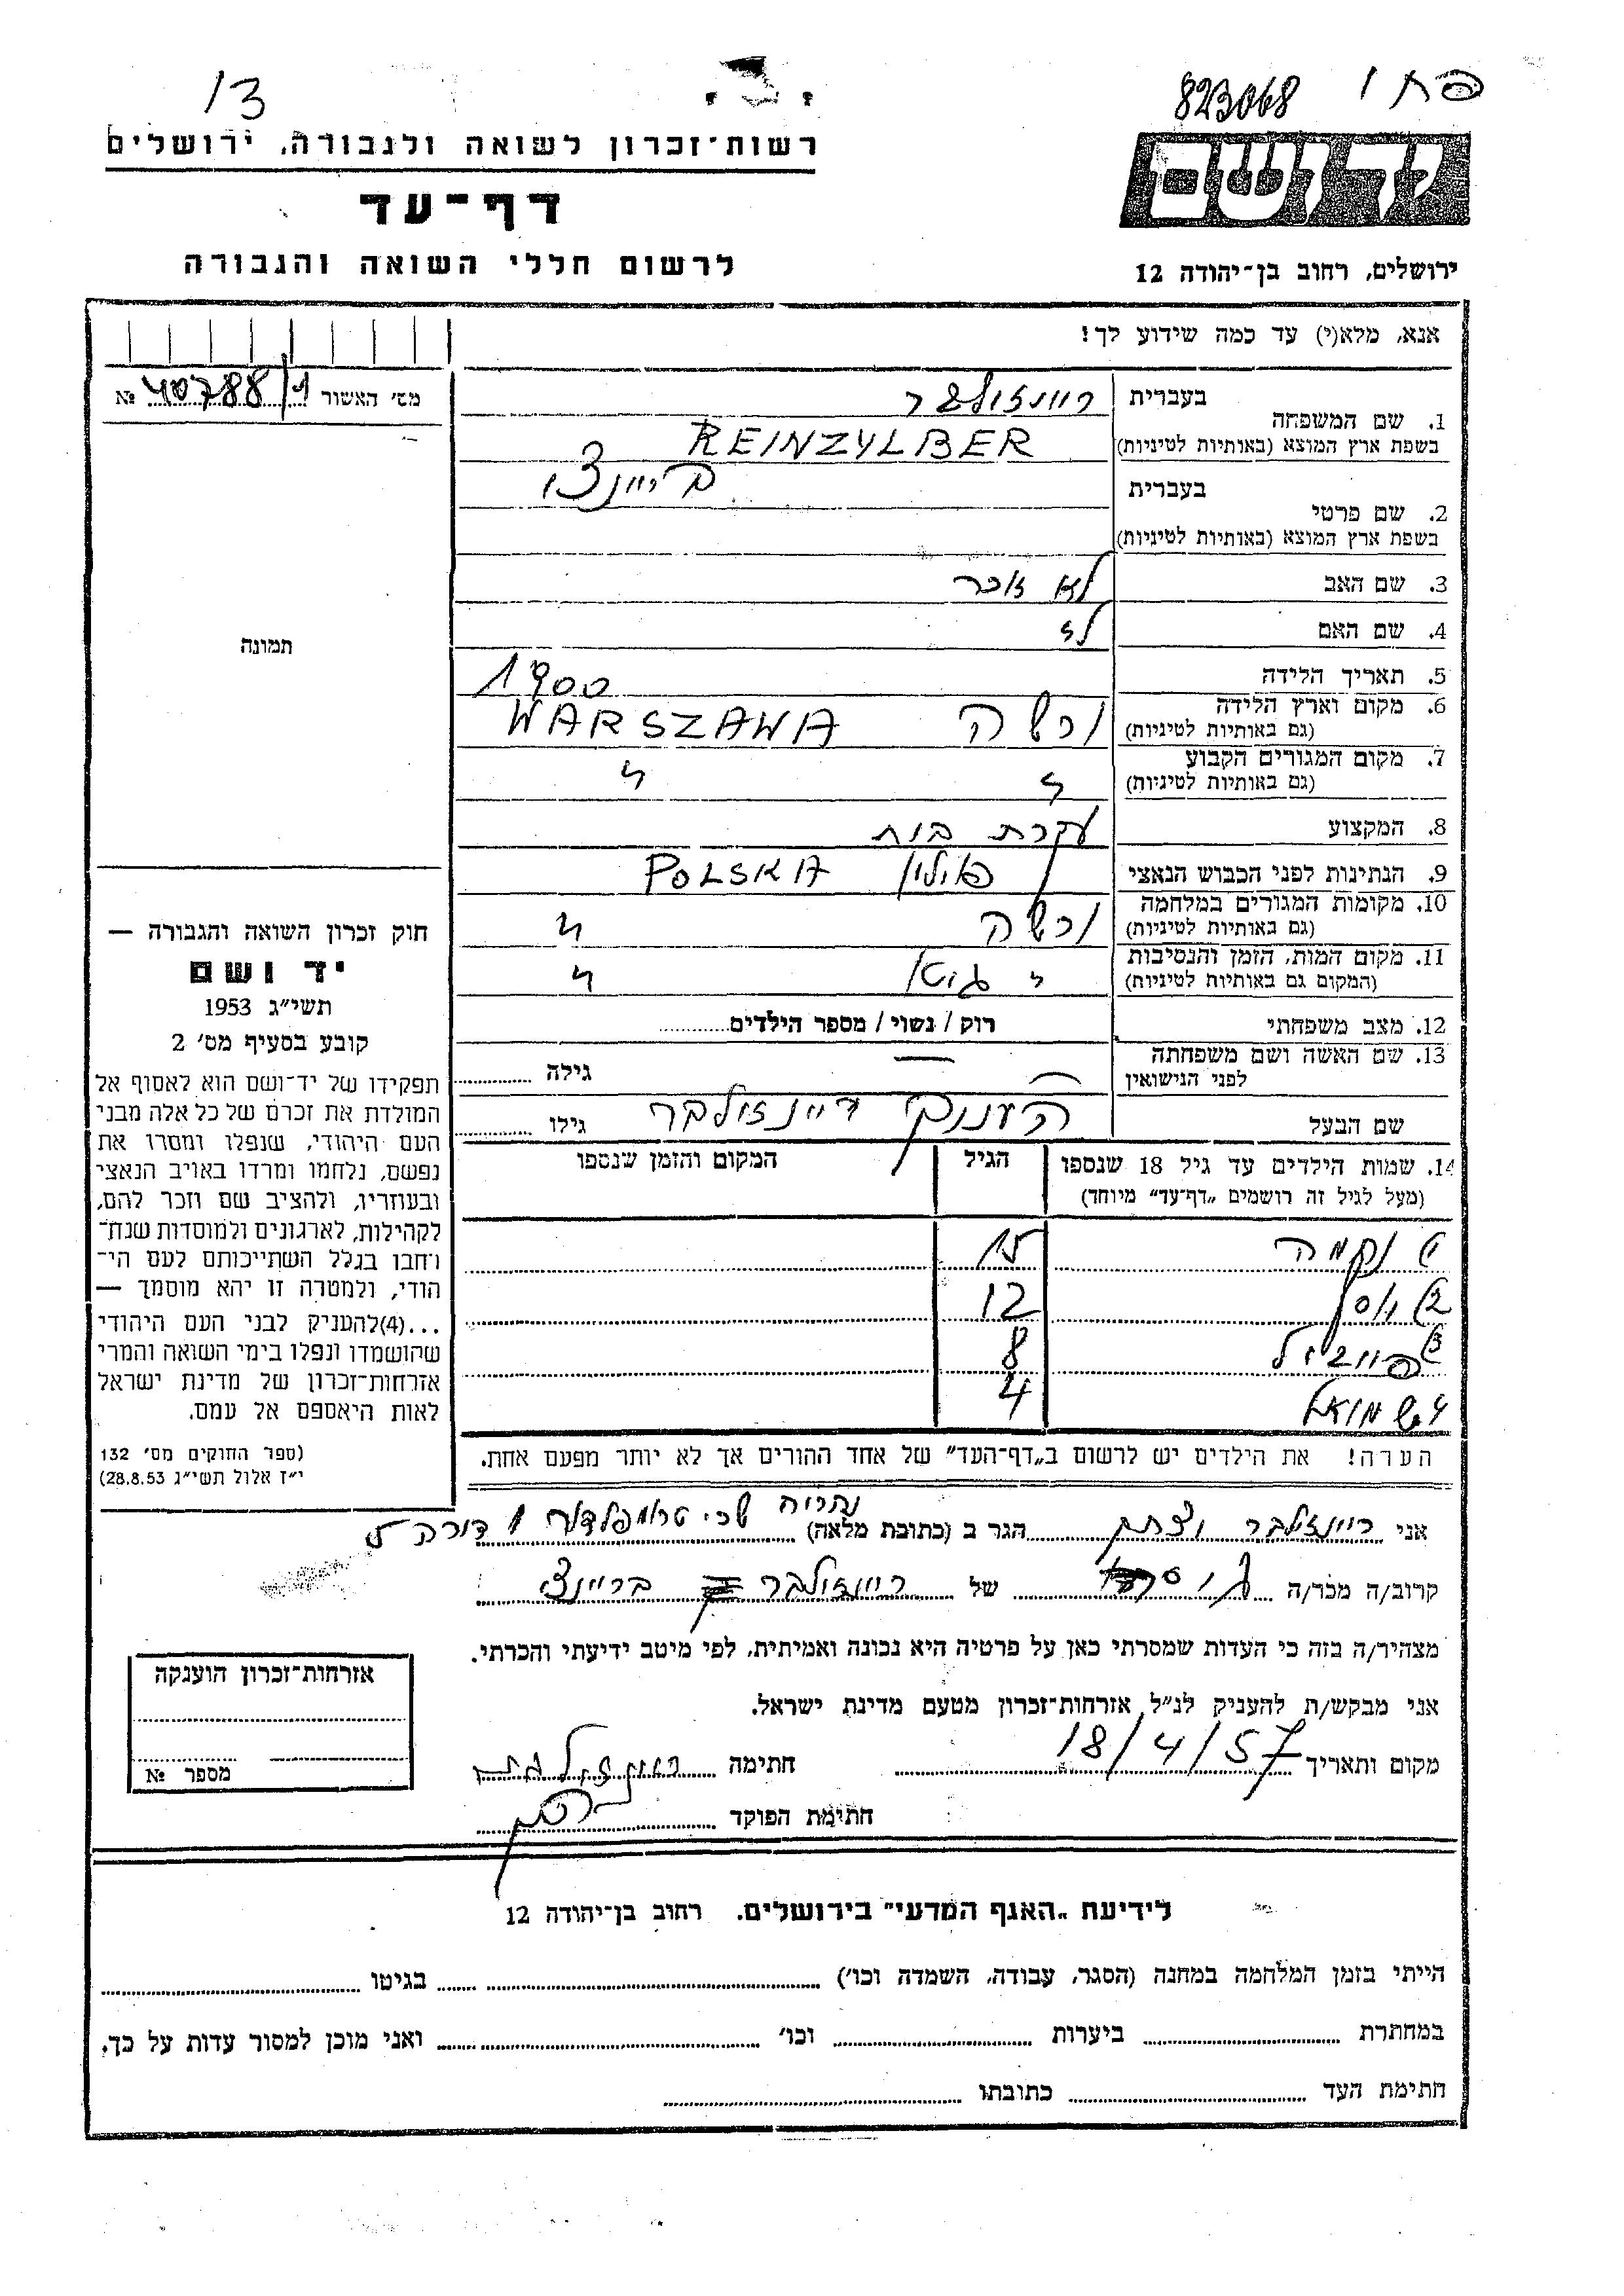 13
823068
רשות־זכרון לשואה ולגבורה, ירושלים
יד ושם
דף־עד
לרשום חללי השואה והגבורה
ירושלים, רחוב בן־יהודה 12
אנא, מלא(י) עד כמה שידוע לך!
מס' האשור № 40788/1
1. שם המשפחה
בעברית ריינזילבר
בשפת ארץ המוצא (באותיות לטיניות) REINZYLBER
2. שם פרטי
בעברית
בשפת ארץ המוצא (באותיות לטיניות)
3. שם האב לא זוכר
4. שם האם
5. תאריך הלידה 1900
6. מקום וארץ הלידה
(גם באותיות לטיניות) ורשה WARSZAWA
7. מקום המגורים הקבוע
(גם באותיות לטיניות) " "
8. המקצוע עקרת בית
9. הנתינות לפני הכבוש הנאצי פולין POLSKA
10. מקומות המגורים במלחמה
(גם באותיות לטיניות) ורשה "
11. מקום המות, הזמן והנסיבות
(המקום גם באותיות לטיניות) " גיטו "
12. מצב משפחתי רוק / נשוי / מספר הילדים
13. שם האשה ושם משפחתה
לפני הנישואין גילה
שם הבעל ריינזילבר גילו
14. שמות הילדים עד גיל 18 שנספו
(מעל לגיל זה רושמים „דף־עד" מיוחד)
הגיל
המקום והזמן שנספו
1) נחמה 15
2) 12
3) פייביל 8
4) שמואל 4
הערה! את הילדים יש לרשום ב„דף־העד" של אחד ההורים אך לא יותר מפעם אחת.
תמונה
חוק זכרון השואה והגבורה —
יד ושם
תשי״ג 1953
קובע בסעיף מס' 2
תפקידו של יד־ושם הוא לאסוף אל
המולדת את זכרם של כל אלה מבני
העם היהודי, שנפלו ומסרו את
נפשם, נלחמו ומרדו באויב הנאצי
ובעוזריו, ולהציב שם וזכר להם,
לקהילות, לארגונים ולמוסדות שנח־
רבו בגלל השתייכותם לעם הי־
הודי, ולמטרה זו יהא מוסמך —
...(4)להעניק לבני העם היהודי
שהושמדו ונפלו בימי השואה והמרי
אזרחות־זכרון של מדינת ישראל
לאות היאספם אל עמם.
(ספר החוקים מס' 132
י״ז אלול תשי״ג 28.8.53)
אני ריינזילבר יצחק הגר ב (כתובת מלאה) נתניה שכ' טרומפלדור
קרוב/ה מכר/ה גיסה של ריינזילבר בריינצי
מצהיר/ה בזה כי העדות שמסרתי כאן על פרטיה היא נכונה ואמיתית, לפי מיטב ידיעתי והכרתי.
אני מבקש/ת להעניק לנ״ל אזרחות־זכרון מטעם מדינת ישראל.
מקום ותאריך 18/4/57 חתימה
חתימת הפוקד
אזרחות־זכרון הוענקה
מספר №
לידיעת „האגף המדעי" בירושלים, רחוב בן־יהודה 12
הייתי בזמן המלחמה במחנה (הסגר, עבודה, השמדה וכו') בגיטו
במחתרת ביערות וכו' ואני מוכן למסור עדות על כך.
חתימת העד כתובתו